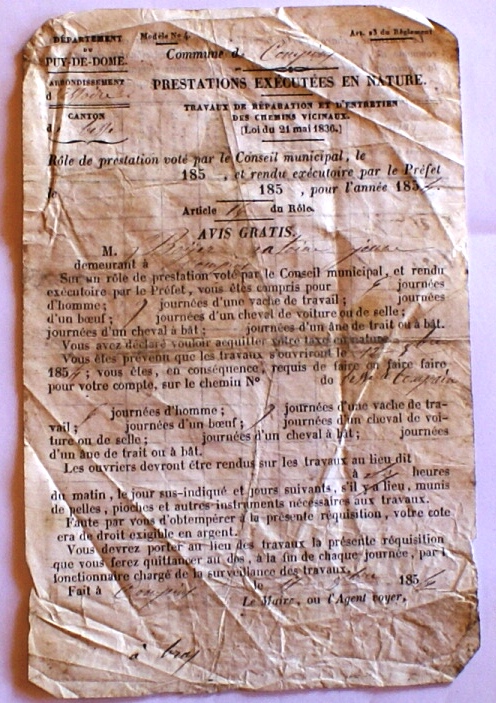 DÉPARTEMENT
DU
PUY-DE-DOME.
ARRONDISSEMENT
d
CANTON
de
Modèle No 4.
Art. 23 du Réglement
Commune d
PRESTATIONS EXÉCUTÉES EN NATURE.
TRAVAUX DE RÉPARATION ET D'ENTRETIEN
DES CHEMINS VICINAUX.
(Loi du 21 mai 1836.)
Rôle de prestation voté par le Conseil municipal, le
185 , et rendu exécutoire par le Préfet
le 185 , pour l'année 185
Article du Rôle.
AVIS GRATIS.
M. jeune
demeurant à
Sur un rôle de prestation voté par le Conseil municipal, et rendu
exécutoire par le Préfet, vous êtes campris pour journées
d'homme; journées d'une vache de travail; journées
d'un bœuf; journées d'un cheval de voiture ou de selle;
journées d'un cheval à bât; journées d'un âne de trait ou à bât.
Vous avez déclaré vouloir acquitter votre taxe en nature.
Vous êtes prévenu que les travaux s'ouvriront le 12
185 ; vous êtes, en conséquence, requis de faire ou faire faire
pour votre compte, sur le chemin No du
journées d'homme; journées d'une vache de tra-
vail; journées d'un bœuf; journées d'un cheval de voi-
ture ou de selle; journées d'un cheval à bât; journées
d'un âne de trait ou à bât.
Les ouvriers devront être rendus sur les travaux au lieu dit
à heures
du matin, le jour sus-indiqué et jours suivants, s'il y a lieu, munis
de pelles, pioches et autres instruments nécessaires aux travaux.
Faute par vous d'obtempérer à la présente réquisition, votre cote
era de droit exigible en argent.
Vous devrez porter au lieu des travaux la présente réquisition
que vous ferez quittancer au dos, à la fin de chaque journée, par l
fonctionnaire chargé de la surveillance des travaux.
Fait à le 185
Le Maire, ou l'Agent voyer,
à